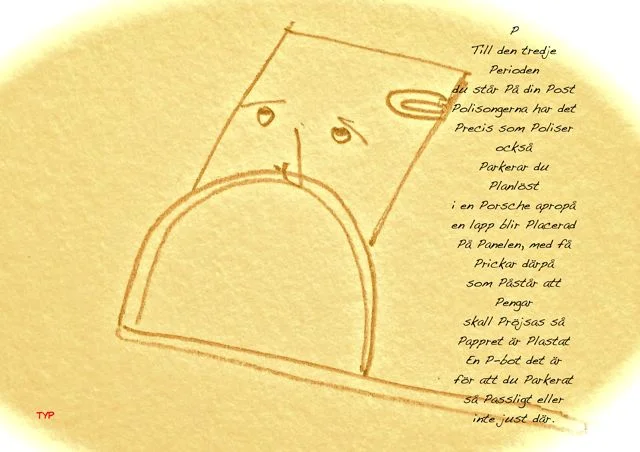 P
Till den tredje
Perioden
du står På din Post
Polisongerna har det
Precis som Poliser
också
Parkerar du
Planlöst
i en Porsche apropå
en lapp blir Placerad
På Panelen, med få
Prickar därpå
som Påstår att
Pengar
skall Pröjsas så
Pappret är Plastat
En P-bot det är
för att du Parkerat
så Passligt eller
inte just där.
TYP